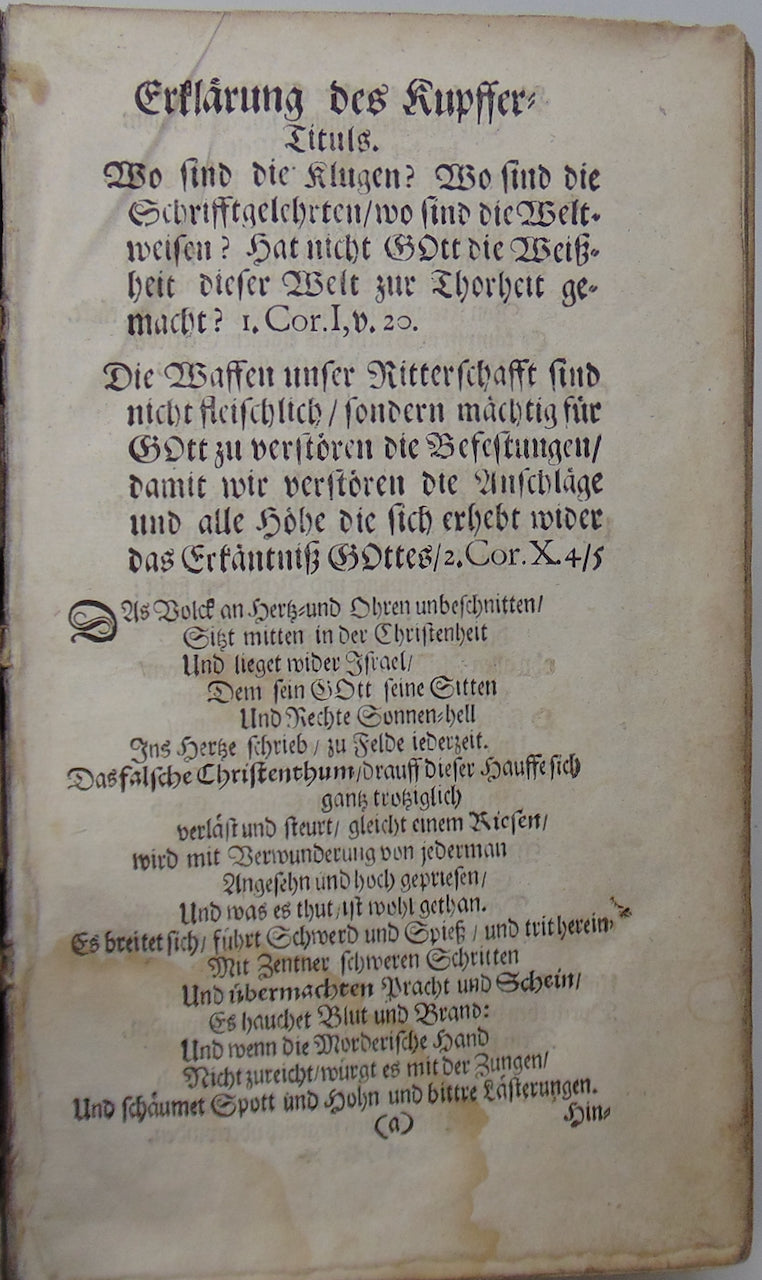 Erklärung des Kupffer-
Tituls.
Wo sind die Klugen? Wo sind die
Schrifftgelehrten/wo sind die Welt-
weisen? Hat nicht GOtt die Weiß-
heit dieser Welt zur Thorheit ge-
macht? 1. Cor. I, v. 20.
Die Waffen unser Ritterschafft sind
nicht fleischlich/ sondern mächtig für
GOtt zu verstören die Befestungen/
damit wir verstören die Anschläge
und alle Höhe die sich erhebt wider
das Erkäntniß GOttes/2. Cor. X. 4/5
DAs Volck an Hertz-und Ohren unbeschnitten/
Sitzt mitten in der Christenheit
Und lieget wider Israel/
Dem sein GOtt seine Sitten
Und Rechte Sonnen-hell
Ins Hertze schrieb/ zu Felde iederzeit.
Das falsche Christenthum/drauff dieser Hauffe sich
gantz trotziglich
verläst und steurt/ gleicht einem Riesen/
wird mit Verwunderung von jederman
Angesehn und hoch gepriesen/
Und was es thut/ist wohl gethan.
Es breitet sich/ führt Schwerd und Spieß/ und trit herein-
Mit Zentner schweren Schritten
Und übermachten Pracht und Schein/
Es hauchet Blut und Brand:
Und wenn die Morderische Hand
Nicht zureicht/würgt es mit der Zungen/
Und schäumet Spott und Hohn und bittre Lästerungen.
(a) Hin-